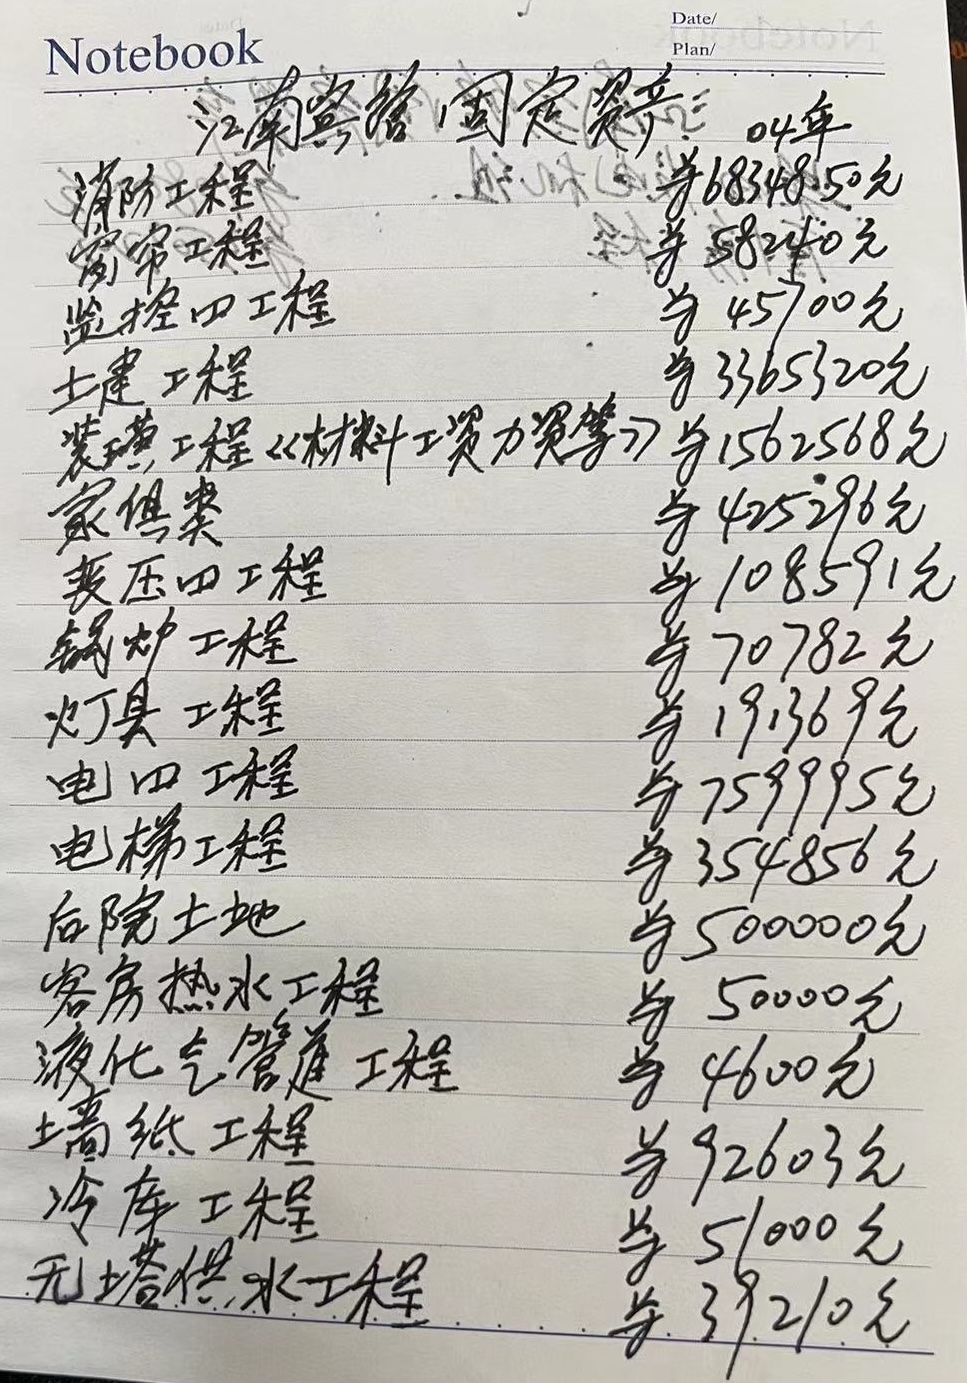 Date/
Plan/
Notebook
江南宾馆固定资产: 04年
消防工程 ¥68348.50元
窗帘工程 ¥58240元
监控四工程 ¥45700元
土建工程 ¥3365320元
装璜工程《材料工资力资等》 ¥1562568元
家俱类 ¥425296元
变压四工程 ¥108591元
锅炉工程 ¥70782元
灯具工程 ¥191369元
电四工程 ¥759995元
电梯工程 ¥354856元
后院土地 ¥500000元
客房热水工程 ¥50000元
液化气管道工程 ¥4600元
墙纸工程 ¥92603元
冷库工程 ¥51000元
无塔供水工程 ¥39210元